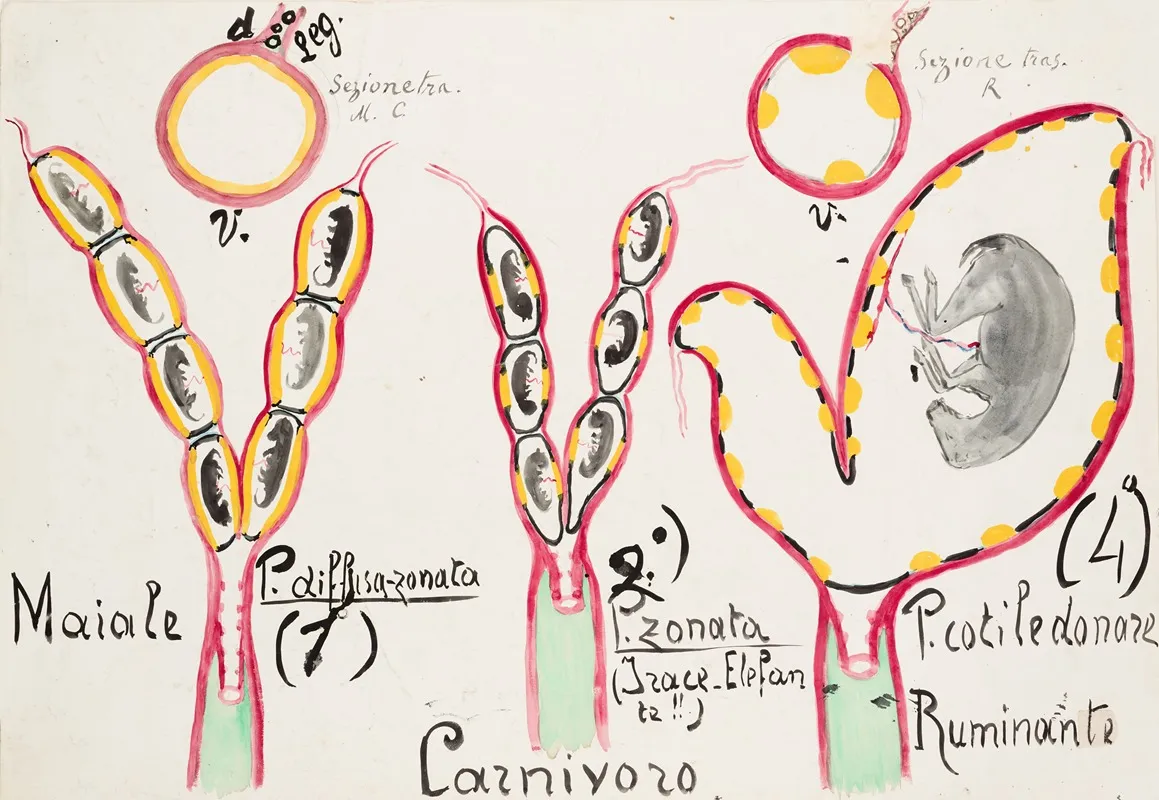 d
leg.
Sezione tra.
M. C
v.
Sezione tras.
R
v.
Maiale
P. diffusa-zonata
(1°)
2°)
P. zonata
(Irace-Elefan
te !!)
Carnivoro
(4°)
P. cotiledonare
Ruminante